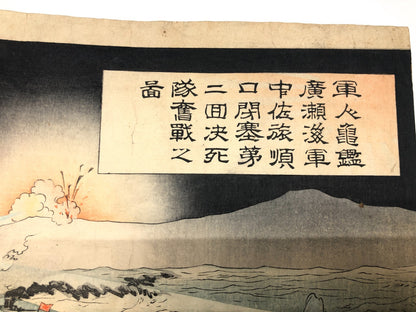 軍人亀鑑
廣瀬海軍
中佐旅順
口閉塞第
二回决死
隊奮戰之
啚